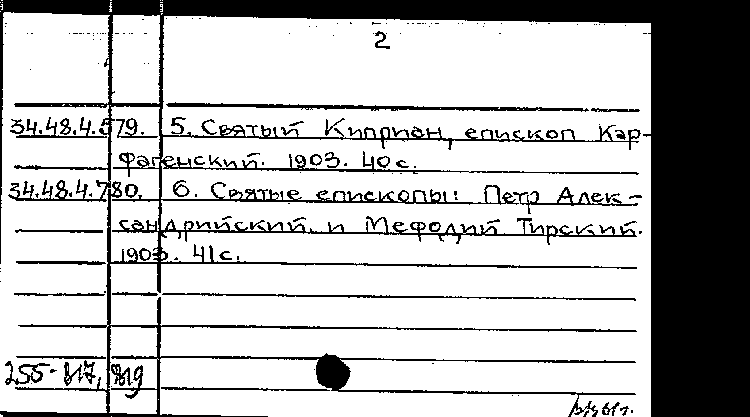 2
34.48.4.579. 5. Святый Киприан, епископ Кар-
фагенский. 1903. 40 с.
34.48.4.780. 6. Святые епископы: Петр Алек-
сандрийский и Мефодий Тирский.
1903. 41 с.
255-817, 819